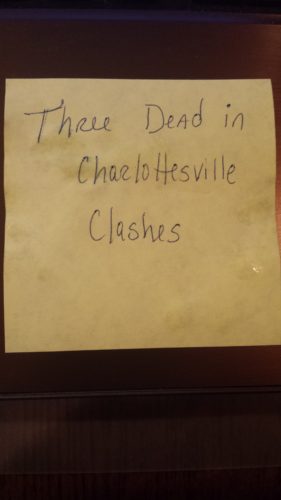 Three Dead in
Charlottesville
Clashes